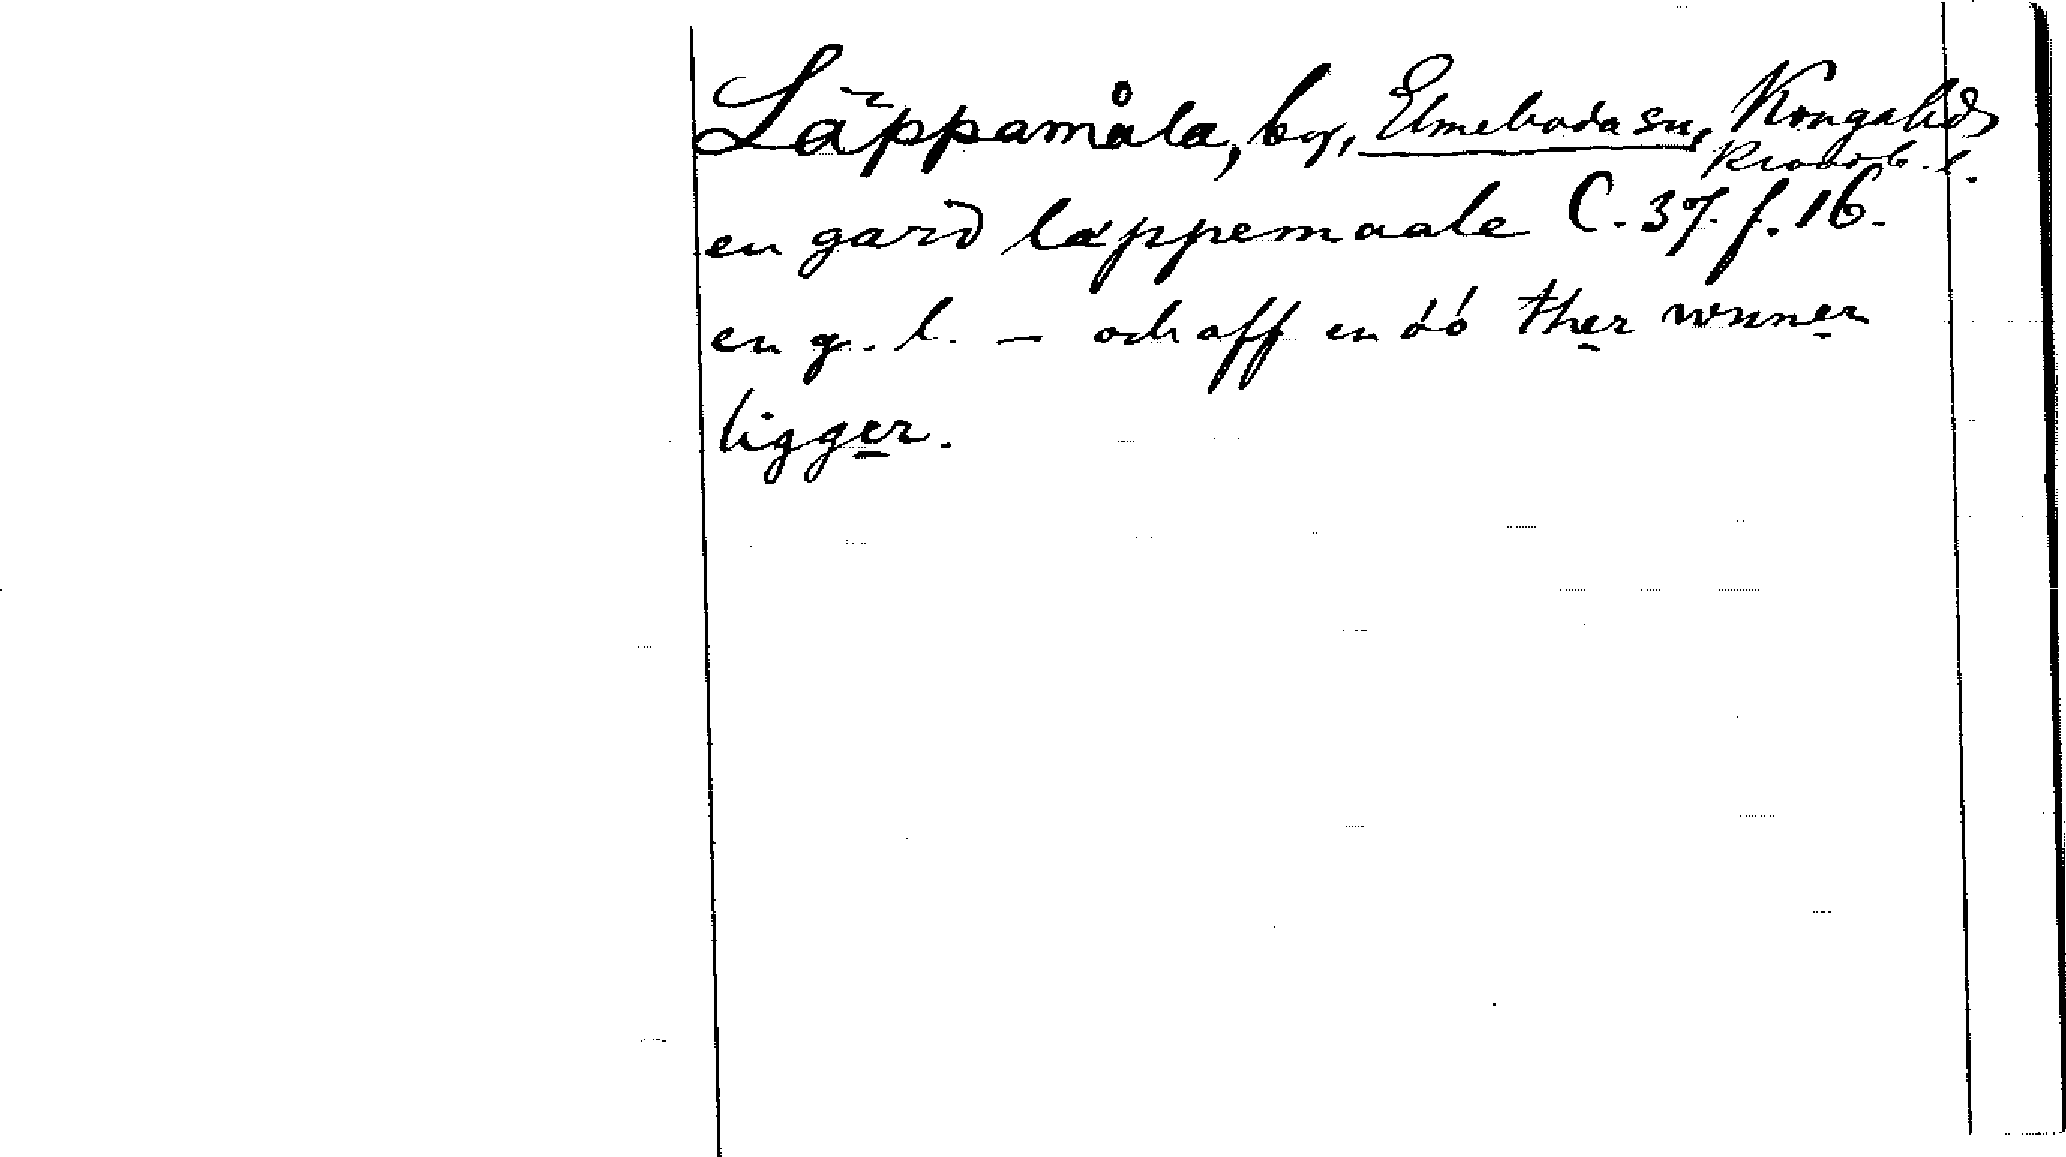 Läppamåla, by, Elmeboda sn, Konga hd
Kronob. l.
en gard läppemaale C. 37. f. 16.
en g. l. — och aff en öö ther wnner
ligger.